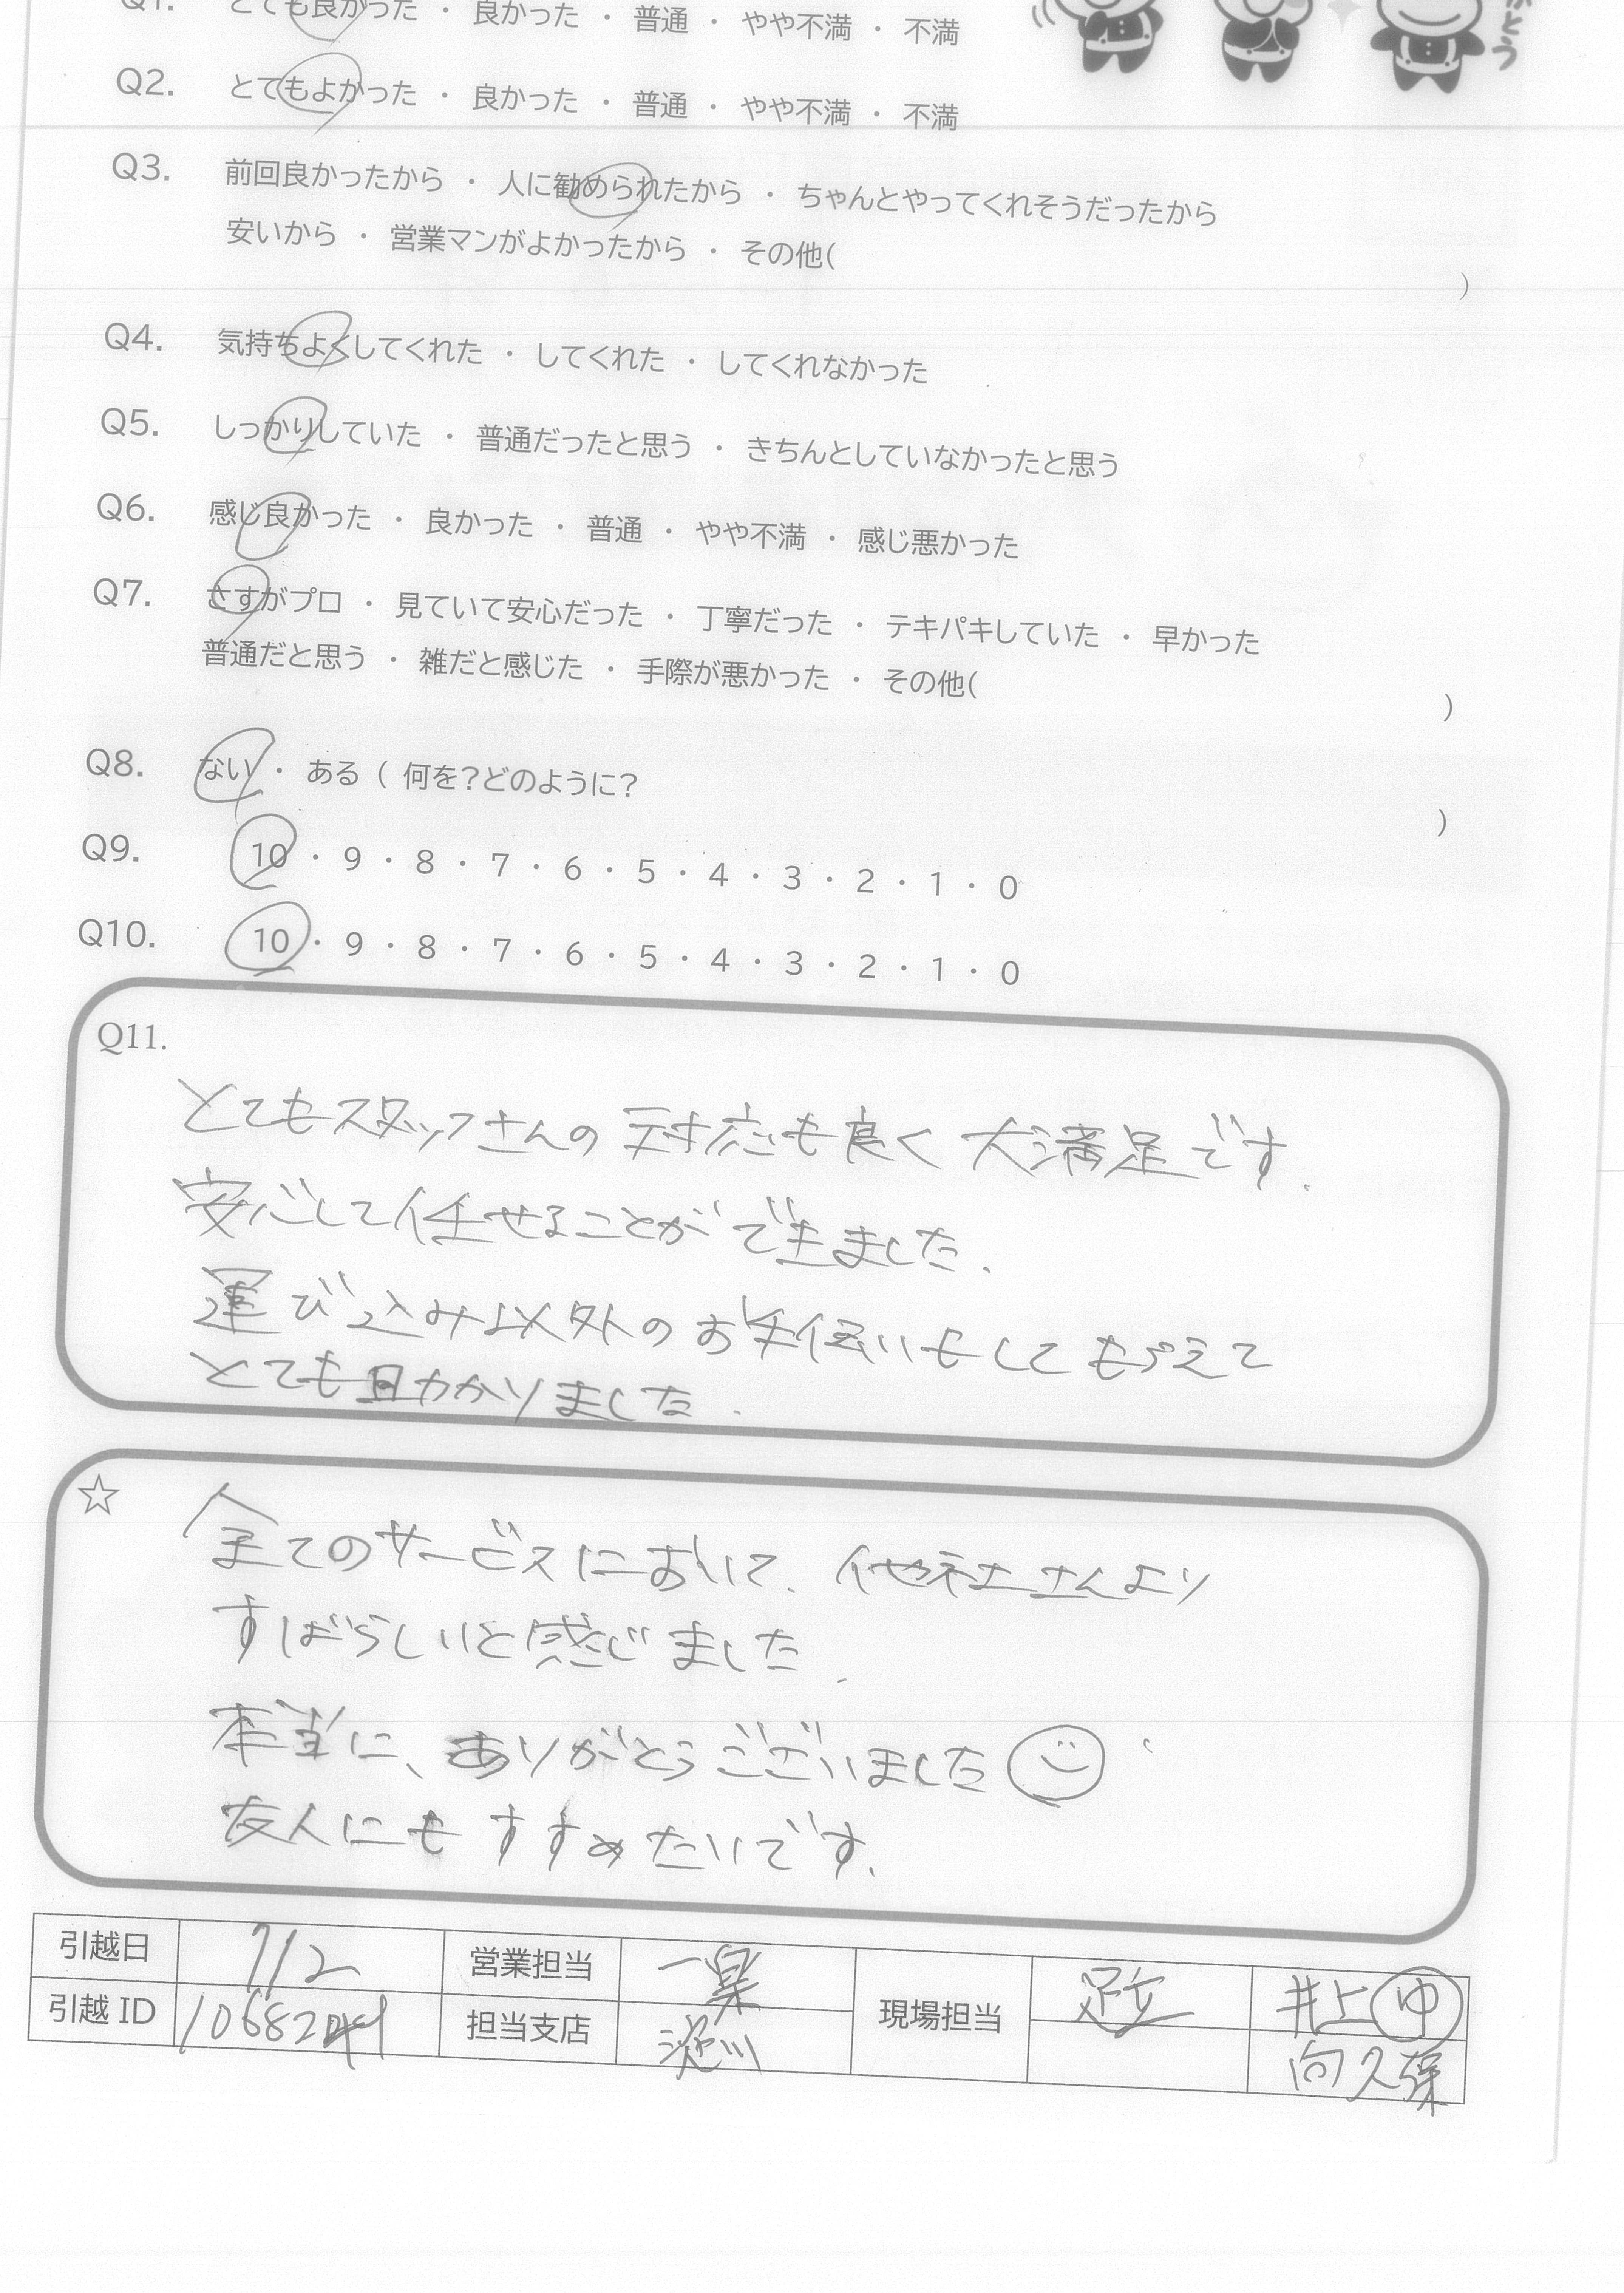 Q1. とても良かった ・ 良かった ・ 普通 ・ やや不満 ・ 不満
とう
Q2. とてもよかった ・ 良かった ・ 普通 ・ やや不満 ・ 不満
Q3. 前回良かったから ・ 人に勧められたから ・ ちゃんとやってくれそうだったから
安いから ・ 営業マンがよかったから ・ その他( )
Q4. 気持ちよくしてくれた ・ してくれた ・ してくれなかった
Q5. しっかりしていた ・ 普通だったと思う ・ きちんとしていなかったと思う
Q6. 感じ良かった ・ 良かった ・ 普通 ・ やや不満 ・ 感じ悪かった
Q7. さすがプロ ・ 見ていて安心だった ・ 丁寧だった ・ テキパキしていた ・ 早かった
普通だと思う ・ 雑だと感じた ・ 手際が悪かった ・ その他( )
Q8. ない ・ ある ( 何を?どのように? )
Q9. 10 ・ 9 ・ 8 ・ 7 ・ 6 ・ 5 ・ 4 ・ 3 ・ 2 ・ 1 ・ 0
Q10. 10 ・ 9 ・ 8 ・ 7 ・ 6 ・ 5 ・ 4 ・ 3 ・ 2 ・ 1 ・ 0
Q11.
とてもスタッフさんの対応も良く大満足です.
安心して任せることができました.
運び込み以外のお手伝いもしてもらえて
とても助かりました.
☆
全てのサービスにおいて、他社さんより
すばらしいと感じました.
本当に、ありがとうございました
友人にもすすめたいです.
引越日 7/2 営業担当 一栗 現場担当 足立 井上 中
引越 ID 担当支店 淀川 向久保